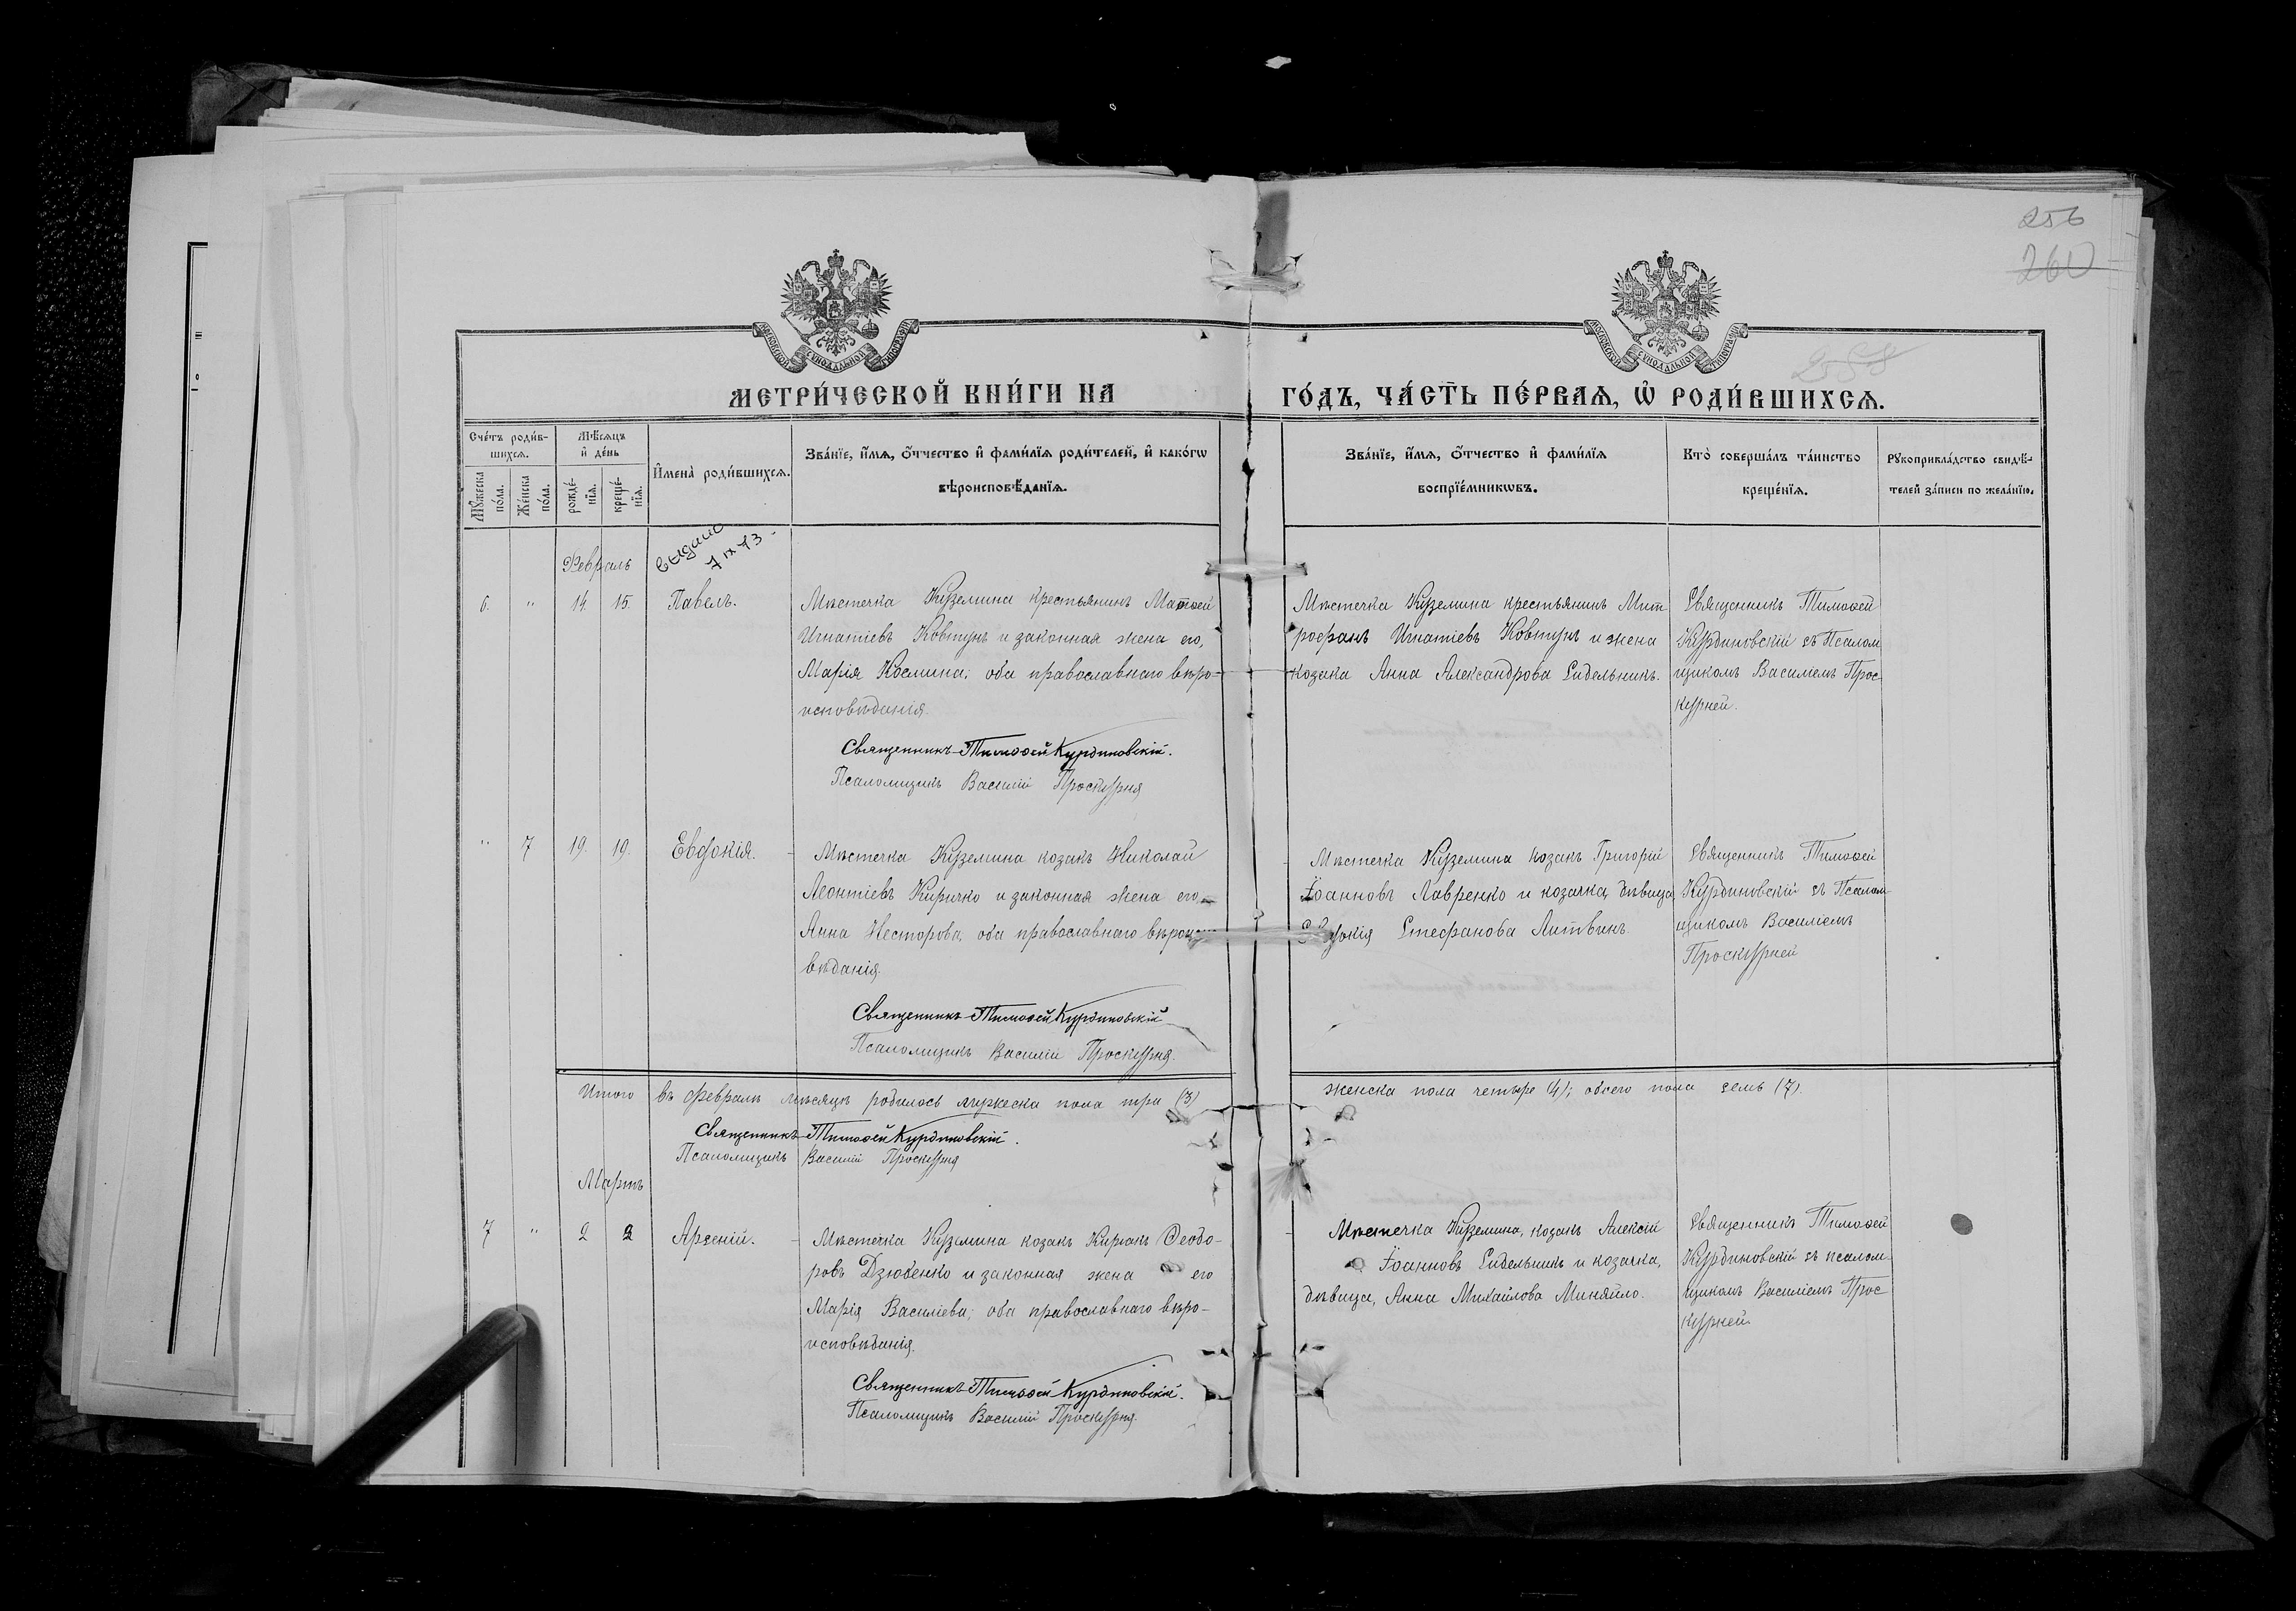 256
260
258
МОСКОВСКОЙ СѴНОДАЛЬНОЙ ТИПОГРАФІИ
МОСКОВСКОЙ СѴНОДАЛЬНОЙ ТИПОГРАФІИ
МЕТРИ́ЧЕСКОЙ КНИ́ГИ НА
ГО́ДЪ, ЧА́СТЬ ПЕ́РВАѦ, Ѡ҆ РОДИ́ВШИХСѦ.
Сче́тъ роди́в-
шихсѧ.
Мѣ́сѧцъ
и҆ де́нь
Мꙋ́жеска
по́ла.
Же́нска
по́ла.
рожде́-
нїѧ.
креще́-
нїѧ.
И҆мена̀ роди́вшихсѧ.
Зва́нїе, и҆́мѧ, ѻ҆́тчество и҆ фами́лїѧ роди́телей, и҆ како́гѡ
вѣроисповѣ́данїѧ.
Зва́нїе, и҆́мѧ, ѻ҆́тчество и҆ фами́лїѧ
воспрїе́мникѡвъ.
Кто̀ соверша́лъ та́инство
креще́нїѧ.
Рꙋкоприкла́дство свидѣ́-
телей за́писи по жела́нїю.
Февраль
Выдано
7 IX 73 -
6. " 14. 15. Павелъ.
Мѣстечка Куземина крестьянинъ Матѳей
Игнатіевъ Ковтунъ и законная жена его,
Марія Космина; оба православнаго вѣро-
исповѣданія.
Священникъ Тимоѳей Курдиновскій.
Псаломщикъ Василій Проскурня
Мѣстечка Куземина крестьянинъ Мит
рофанъ Игнатіевъ Ковтунъ и жена
козака Анна Александрова Сидельникъ.
Священникъ Тимоѳей
Курдиновскій съ Псалом
щикомъ Василіемъ Прос
курней.
" 7 19. 19. Евдокія.
Мѣстечка Куземина козакъ Николай
Леонтіевъ Киричко и законная жена его,
Анна Несторова; оба православнаго вѣроиспо
вѣданія.
Священникъ Тимоѳей Курдиновскій
Псаломщикъ Василій Проскурня.
Мѣстечка Куземина козакъ Григорій
Іоанновъ Лавренко и козачка, дѣвица
Евдокія Стефанова Литвинъ.
Священникъ Тимоѳей
Курдиновскій съ Псалом-
щикомъ Василіемъ
Проскурней
Итого въ февралѣ мѣсяцѣ родилось мужеска пола три (3)
женска пола четыре (4); обоего пола семь (7).
Священникъ Тимоѳей Курдиновскій.
Псаломщикъ Василій Проскурня
Мартъ
7 " 2 2 Арсеній.
Мѣстечка Куземина козакъ Киріакъ Ѳеодо-
ровъ Дзюбенко и законная жена его
Марія Василіева; оба православнаго вѣро-
исповѣданія.
Священникъ Тимоѳей Курдиновскій.
Псаломщикъ Василій Проскурня.
Мѣстечка Куземина, козакъ Алексій
Іоанновъ Сидельникъ и козачка,
дѣвица, Анна Михайлова Миняйло.
Священникъ Тимоѳей
Курдиновскій съ псалом-
щикомъ Василіемъ Прос
курней.